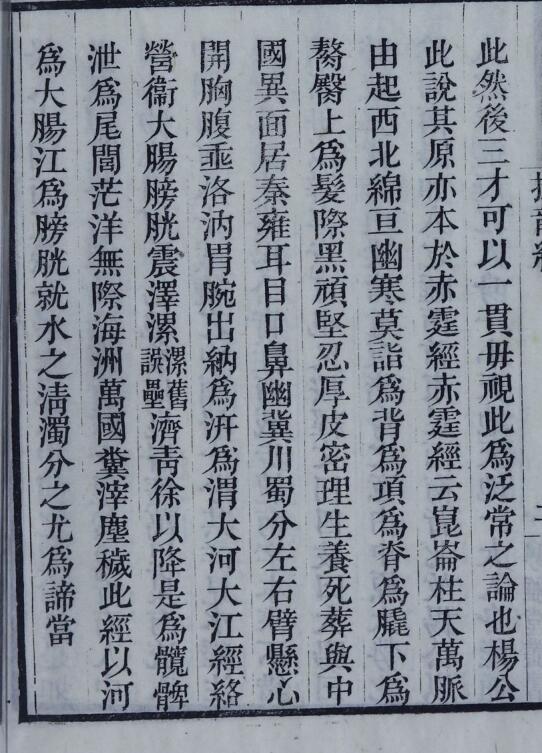 此然後三才可以一貫毋視此爲泛常之論也楊公
此說其原亦本於赤霆經赤霆經云崑崙柱天萬脈
由起西北綿亘幽寒莫詣爲背爲項爲脊爲膍下爲
臀上爲髮際黑頑堅忍厚皮密理生養死葬與中
國異面居秦雍耳目口鼻幽冀川蜀分左右臂懸心
開胸腹垂洛汭胃腕出納爲汧爲渭大河大江經絡
營衞大腸膀胱震澤漯漯舊誤壘濟靑徐以降是爲髖髀
泄爲尾閭茫洋無際海洲萬國糞滓塵穢此經以河
爲大腸江爲膀胱就水之淸濁分之尤爲諦當